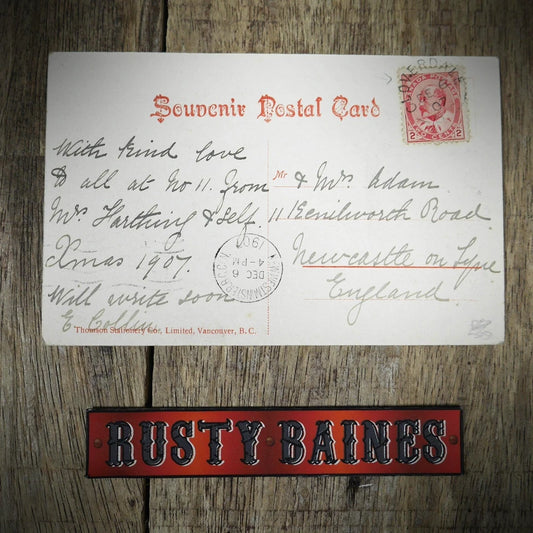 Souvenir Postal Card
With kind love
to all at No 11. from
Mrs Farthing & Self.
Xmas 1907.
Will write soon
E Collin
Mr & Mrs Adam
11 Kenilworth Road
Newcastle on Tyne
England
CLOVERDALE
CANADA POSTAGE
2 CENTS 2
NEW WESTMINSTER B.C.
DEC 6
4-PM
1907
Thomson Stationery Co., Limited, Vancouver, B. C.
RUSTY BAINES